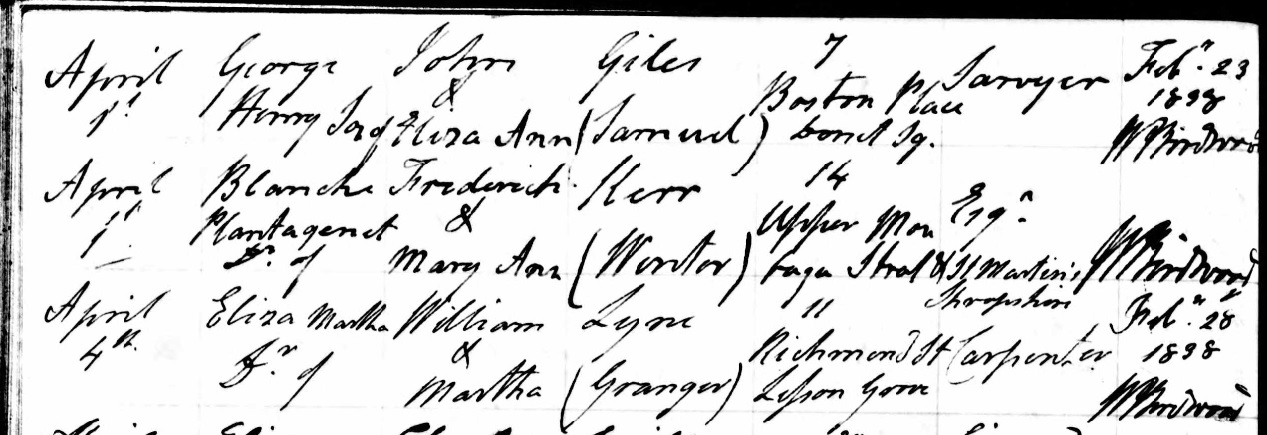 April George John Giles 7 Sawyer Feb. 23
1st Henry Son of & Eliza Ann (Samuel) Boston Place Dorset Sq. 1898 W Birdwood
April Blanche Frederick Kerr 14 Esqr.
1st Plantagenet & Upper Mon
Dr. of Mary Ann (Winter) tagu Street & St Martin's W Birdwood
Shropshire
April Eliza Martha William Lyne 11 Feb. 28
4th & Richmond St Carpenter 1898
Dr. of Martha (Granger) Lisson Grove W Birdwood